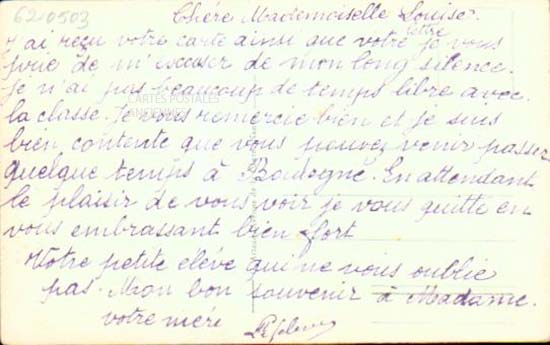 620503
Chère Mademoiselle Louise.
J'ai reçu votre carte ainsi que votre lettre je vous
prie de m'excuser de mon long silence.
Je n'ai pas beaucoup de temps libre avec
CARTES POSTALES
ANCIENNES
la classe. Je vous remercie bien et je suis
bien contente que vous pouvez venir passer
quelque temps à Boulogne. En attendant
le plaisir de vous voir je vous quitte en
vous embrassant bien fort
Votre petite elève qui ne vous oublie
pas. Mon bon souvenir à Madame.
votre mère